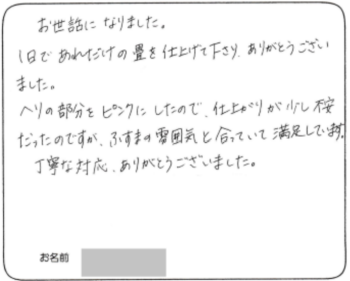 お世話になりました。
1日であれだけの畳を仕上げて下さり、ありがとうござい
ました。
ヘリの部分をピンクにしたので、仕上がりが少し不安
だったのですが、ふすまの雰囲気と合っていて満足しています。
丁寧な対応、ありがとうございました。
お名前